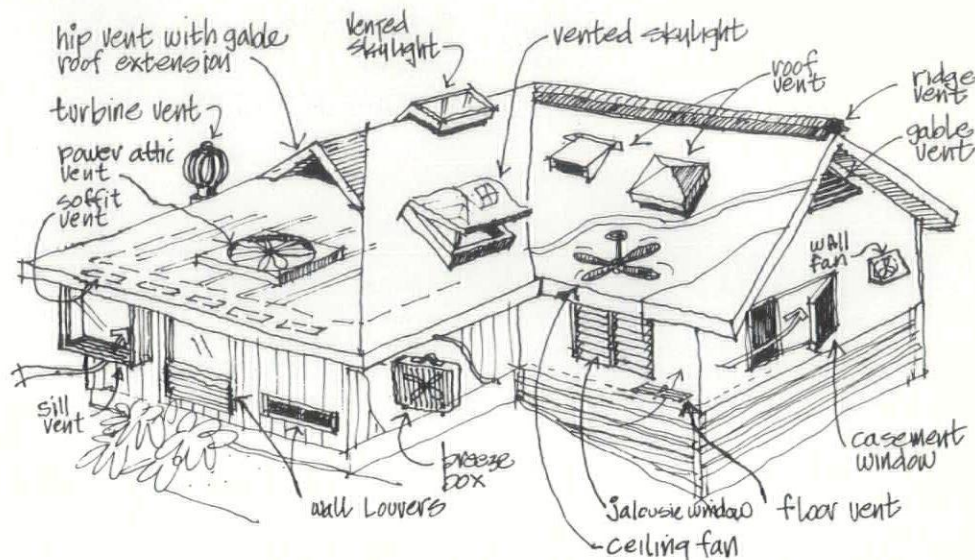 hip vent with gable
roof extension
vented
skylight
vented skylight
roof
vent
ridge
vent
turbine vent
gable
vent
power attic
vent
soffit
vent
wall
fan
sill
vent
breeze
box
casement
window
wall Louvers
jalousie window
floor vent
ceiling fan